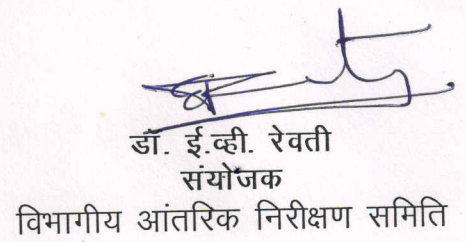 डॉ. ई.व्ही. रेवती
संयोजक
विभागीय आंतरिक निरीक्षण समिति